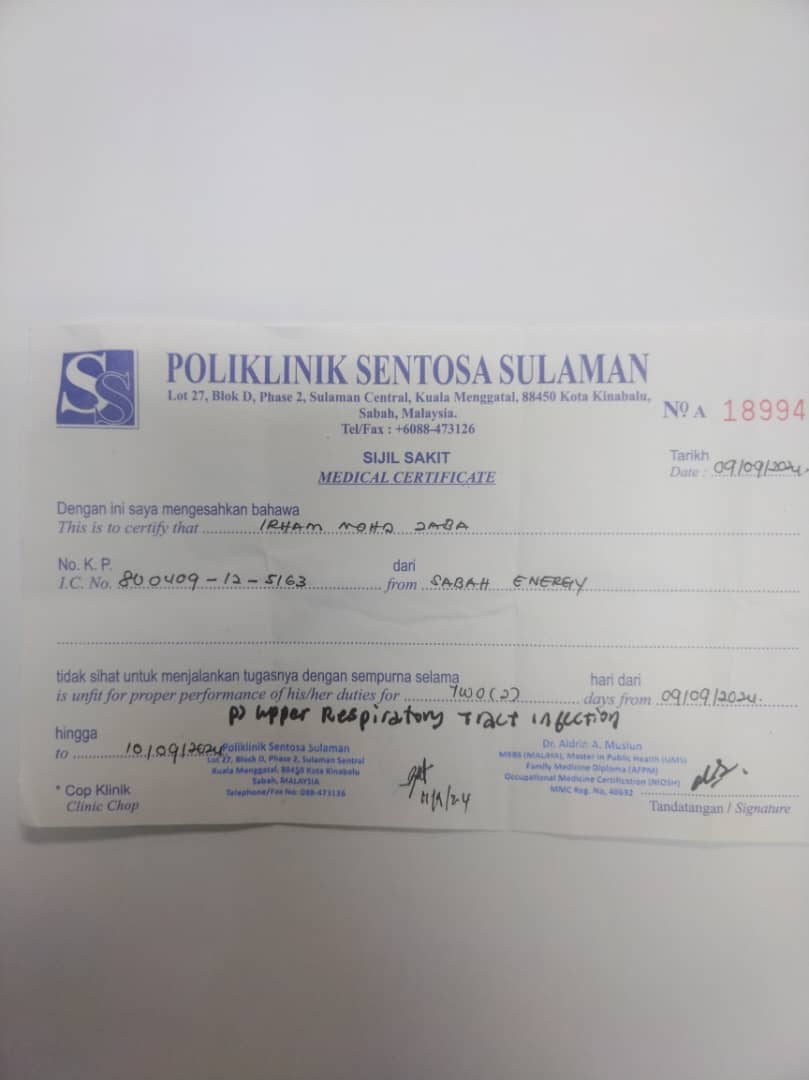 SS
POLIKLINIK SENTOSA SULAMAN
Lot 27, Blok D, Phase 2, Sulaman Central, Kuala Menggatal, 88450 Kota Kinabalu,
Sabah, Malaysia.
Tel/Fax : +6088-473126
Nº A 18994
SIJIL SAKIT
MEDICAL CERTIFICATE
Tarikh
Date : 09/09/2024.
Dengan ini saya mengesahkan bahawa
This is to certify that IRHAM MOHD JABA
No. K. P. dari
I.C. No. 800409-12-5163 from SABAH ENERGY
tidak sihat untuk menjalankan tugasnya dengan sempurna selama hari dari
is unfit for proper performance of his/her duties for TWO (2) days from 09/09/2024.
Upper Respiratory Tract Infection
hingga
to 10/09/2024
Poliklinik Sentosa Sulaman
Lot 27, Block D, Phase 2, Sulaman Sentral
Kuala Menggatal, 88450 Kota Kinabalu
Sabah, MALAYSIA
Telephone/Fax No: 088-473126
Dr. Aldrin A. Muslun
MBBS (MALAYA), Master in Public Health (UMS)
Family Medicine Diploma (AFPM)
Occupational Medicine Certification (NIOSH)
MMC Reg. No, 40632
* Cop Klinik
Clinic Chop
Tandatangan / Signature